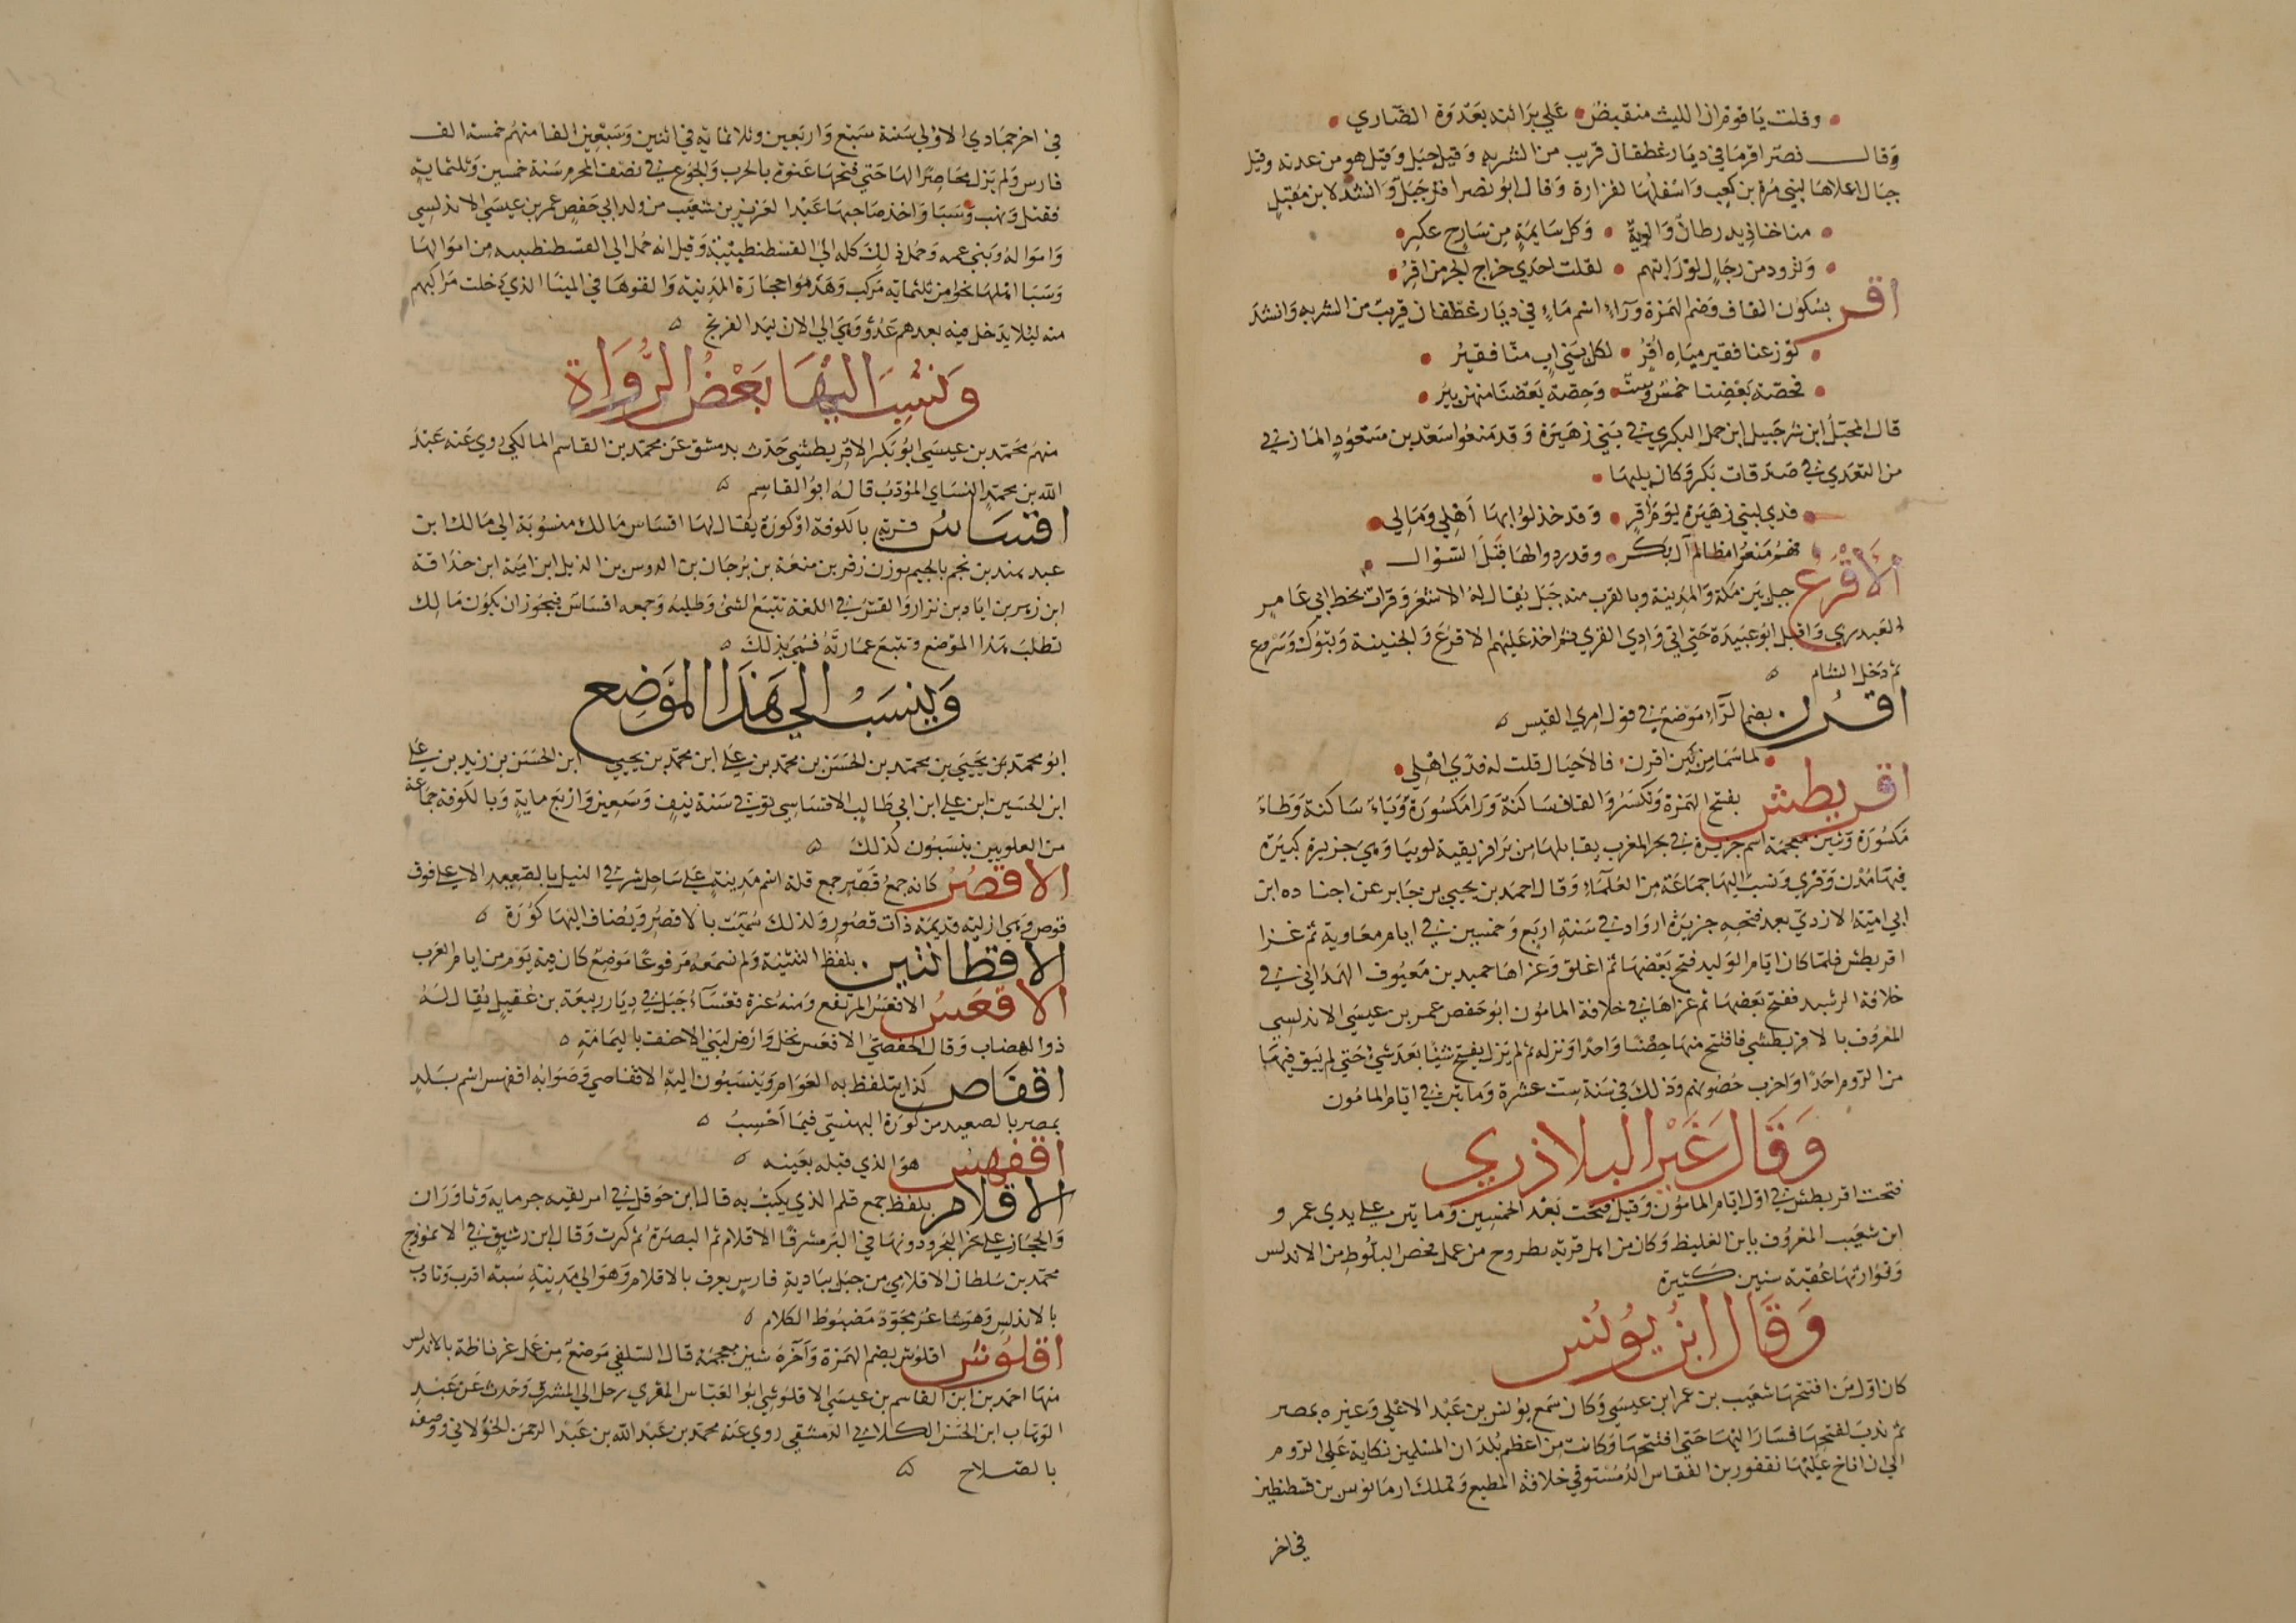 وقلت يا قوم ان الليث منقبض علي براثنه بعدوة الضاري
وقال نصر اقر ما في ديار غطفان قريب من الشربه وقيل جبل وقيل هو من عدنه وقيل
جبال اعلاها لبني مرة بن كعب واسفلها لفزارة وقال ابو نصر اقر جبل وانشد لابن مقبل
وكل سايمة من سارح عكر
وثروة من رجال لو رايتهم لقلت احدي حراج الجر من اقر
اقر بسكون القاف وضم الهمزة ورآء اسم ماء في ديار غطفان قريب من الشربه وانشد
توزعنا فقير مياه اقر لكل بني اب منا فقير
فحصة بعضنا خمس وست وحصة بعضنا منهن بير
قال المخبل ابن شرجيل ابن حمل البكري في بني زهيرة وقد منعوا سعد بن مسعود المازني
من التعدي في صدقات بكر وكان يليها
فدي لبني زهيرة يوم اقر وقد خذلوا بها اهلي ومالي
فهم منعوا مظالم آل بكر وقد ردوا لها قبل السؤال
الاقرع جبل بين مكة والمدينة وبالقرب منه جبل يقال له الاشعر وقرات بخط ابي عامر
العبدري واقبل ابو عبيدة حتي اتي وادي القري ثم اخذ عليهم الاقرع والجنينة وتبوك وسروع
ثم دخل الشام
اقرن بضم الرآء موضع في قول امري القيس
لما سما من بين اقرن فالاجبال قلت له فدي اهلي
اقريطش بفتح الهمزة وتكسر والقاف ساكنة ورا مكسورة وياء ساكنة وطاء
مكسورة وشين معجمة اسم جزيرة في بحر المغرب يقابلها من بر افريقية لوبيا وهي جزيرة كبيرة
فيها مدن وقري ونسب اليها جماعة من العلماء وقال احمد بن يحيي بن جابر عن اجناده ابن
ابي امية الازدي بعد فتحه جزيرة ارواد في سنة اربع وخمسين في ايام معاوية ثم غزا
اقريطش فلما كان ايام الوليد فتح بعضها ثم اغلق وغزاها حميد بن معيوف الهمداني في
خلافة الرشيد ففتح بعضها ثم غزاها في خلافة المامون ابو حفص عمر بن عيسي الاندلسي
المعروف بالاقريطشي فافتتح منها حصنا واحدا ونزله ثم لم يزل يفتح شيئا بعد شيء حتي لم يبق فيها
من الروم احدا واخرب حصونهم وذلك في سنة ست عشرة وماتين في ايام المامون
وقال غير البلاذري
فتحت اقريطش في اول ايام المامون وقيل فتحت بعد الخمسين وماتين علي يدي عمرو
ابن شعيب المعروف بابن الغليظ وكان من اهل قرية بطروح من عمل فحص البلوط من الاندلس
وتوارثها عقبه سنين كثيرة
وقال ابن يونس
كان اول من افتتحها شعيب بن عمر ابن عيسي وكان سمع يونس بن عبد الاعلي وغيره بمصر
ثم ندب لفتحها فسار اليها حتي افتتحها وكانت من اعظم بلدان المسلمين نكاية علي الروم
الي ان اناخ عليها نقفور بن الفقاس الدمستق في خلافة المطيع وتملك ارمانوس بن قسطنطين
في اخر
في اخر جمادي الاولي سنة سبع واربعين وثلاثماية في اثنين وسبعين الفا منهم خمسة الف
فارس ولم يزل محاصرا لها حتي فتحها عنوة بالحرب والجوع في نصف المحرم سنة خمسين وثلثماية
فقتل ونهب وسبا واخذ صاحبها عبد العزيز بن شعيب من ولد ابي حفص عمر بن عيسي الاندلسي
وامواله وبني عمه وحمل ذلك كله الي القسطنطينية وقيل انه حمل الي القسطنطينيه من اموالها
وسبا اهلها نحو من ثلثماية مركب وهدموا حجارة المدينة والقوها في المينا الذي دخلت مراكبهم
منه ليلا يدخل فيه بعدهم عدو وهي الي الان بيد الفرنج
ونسب اليها بعض الرواة
منهم محمد بن عيسي ابو بكر الاقريطشي حدث بدمشق عن محمد بن القاسم المالكي روي عنه عبد
الله بن محمد النساي المؤدب قاله ابو القاسم
اقساس قرية بالكوفة او كورة يقال لها اقساس مالك منسوبة الي مالك ابن
عبد هند بن نجم بالجيم بوزن زفر بن منعة بن برجان بن الدوس بن الديل ابن امية ابن حذاقة
ابن زهر بن اياد بن نزار والقس في اللغة تتبع الشيء وطلبه وجمعه اقساس فيجوز ان يكون مالك
تطلب هذا الموضع وتتبع عمارته فسمي بذلك
وينسب الي هذا الموضع
ابو محمد بن يحيي بن محمد بن الحسن بن محمد بن علي ابن محمد بن يحيي ابن الحسن بن زيد بن علي
ابن الحسين ابن علي ابن ابي طالب الاقساسي توفي في سنة نيف وسبعين واربع ماية وبالكوفة جماعة
من العلويين ينسبون كذلك
الاقصر كانه جمع قصر جمع قلة اسم مدينة علي ساحل شرقي النيل بالصعيد الاعلي فوق
قوص وهي ازلية قديمة ذات قصور ولذلك سميت بالاقصر ويضاف اليها كورة
الاقطانتين بلفظ التثنية ولم نسمعه مرفوعا موضع كان فيه يوم من ايام العرب
الاقعس الاقعس المرتفع ومنه عزة قعسآء جبل في ديار ربيعة بن عقيل يقال له
ذو الهضاب وقال الحفصي الاقعس نخل وارض لبني الاحنف باليمامة
اقفاص كذا يتلفظ به العوام وينسبون اليه الاقفاصي وصوابه اقفهس اسم بلد
بمصر بالصعيد من كورة البهنسي فيما احسب
اقفهس هو الذي قبله بعينه
الاقلام بلفظ جمع قلم الذي يكتب به قال ابن حوقل في افريقيه جرماية وتاوران
والحجا علي نحر البحر ودونها في البر مشرقا الاقلام ثم البصرة ثم كرت وقال ابن رشيق في الانموذج
محمد بن سلطان الاقلامي من جبل ببادية فارس يعرف بالاقلام وهو الي مدينة سبتة اقرب وتادب
بالاندلس وهو شاعر مجود مضبوط الكلام
اقلوش اقلوش بضم الهمزة وآخره شين معجمة قال السلفي موضع من عمل غرناطة بالاندلس
منها احمد بن ابن القاسم بن عيسي الاقلوشي ابو العباس المقري رحل الي المشرق وحدث عن عبد
الوهاب ابن الحسن الكلابي الدمشقي روي عنه محمد بن عبد الله بن عبد الرحمن الخولاني ووصفه
بالصلاح